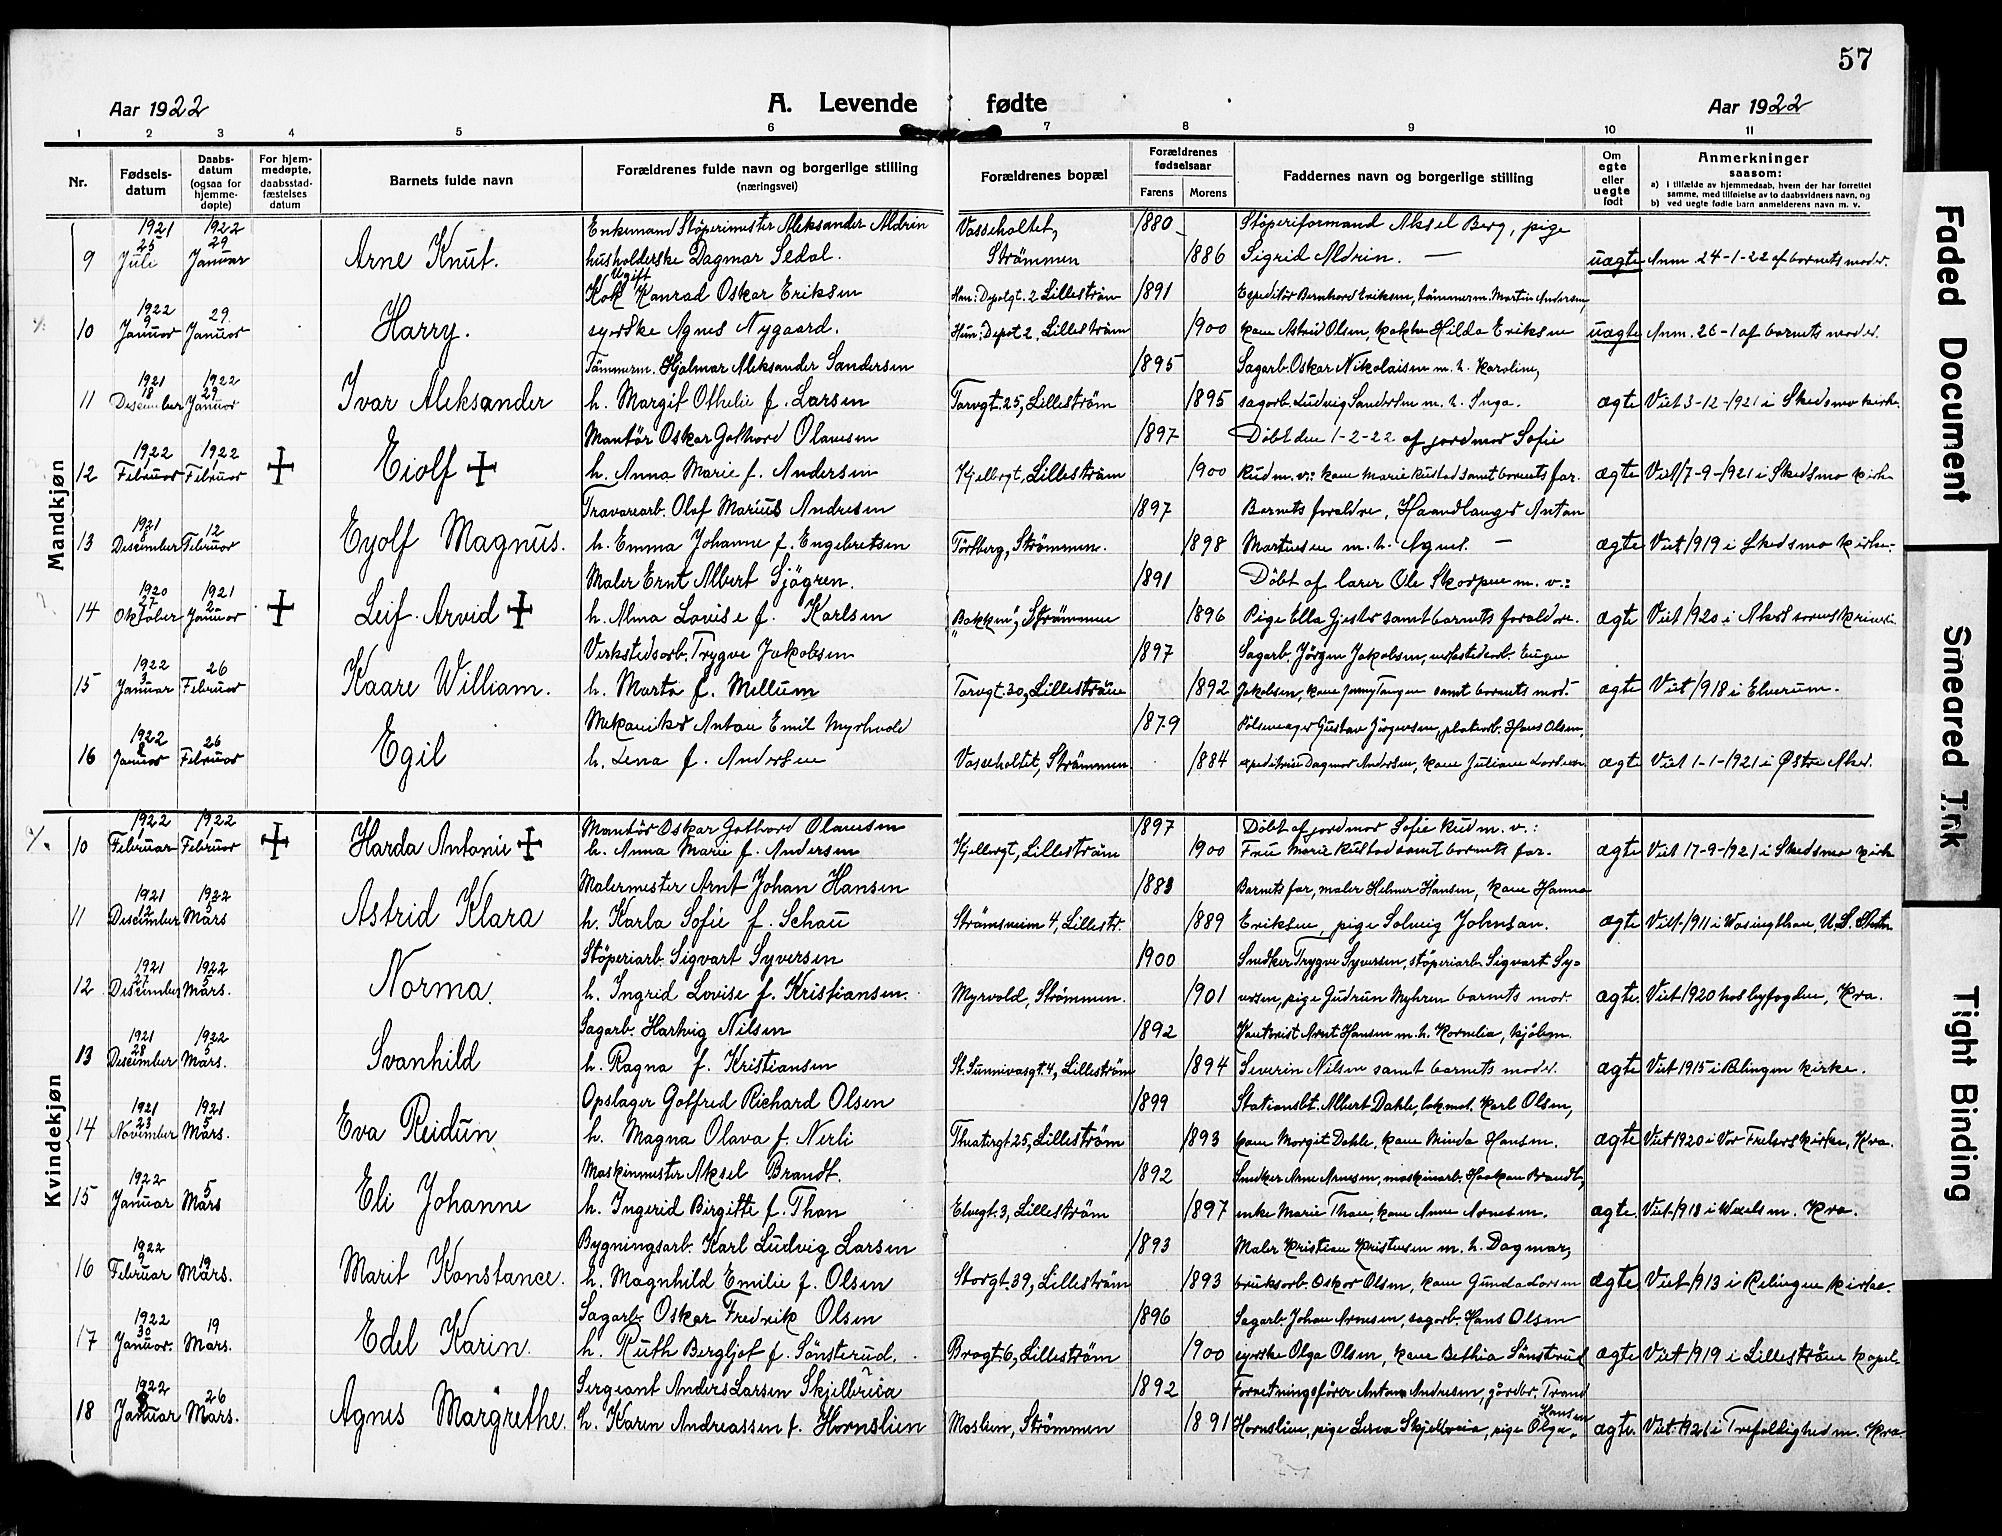 57
Aar 1922 A. Levende fødte Aar 1922
1 2 3 4 5 6 7 8 9 10 11
Nr. Fødselsdatum Daabsdatum (ogsaa for hjemmedøpte) For hjemmedøpte, daabsstadfæstelses datum Barnets fulde navn Forældrenes fulde navn og borgerlige stilling (næringsvei) Forældrenes bopæl Forældrenes fødselsaar Farens Morens Faddernes navn og borgerlige stilling Om egte eller uegte født Anmerkninger saasom:
a) i tilfælde av hjemmedaab, hvem der har forrettet samme, med tilføielse av to daabsvidners navn, og
b) ved uegte fødte barn anmelderens navn m. v.
Mandkjøn
1921 1922 Enkemand Støperimester Aleksander Aldrin Vasseholtet, 1880 Støperiformand Aksel Berg, pige
9 25 Juli 29 Januar Arne Knut. husholderske Dagmar Sedal. Strömmen 1886 Sigrid Aldrin. — uagte Anm. 24-1-22 af barnets moder.
1922 Ugift Kok Konrad Oskar Eriksen Han: Depotgt. 2 Lilleström 1891 Expeditör Bernhard Eriksen, tömmerm. Martin Andersen,
10 9 Januar 29. Januar Harry. syerske Agnes Nygaard. Hun: Depot 2, Lilleström 1900 kone Astrid Olsen, kokke Hilda Eriksen uagte Anm. 26-1 af barnets moder.
1921 1922 Tömmerm. Hjalmar Aleksander Sandersen 1895 Sagarb. Oskar Nikolaisen m. h. Karoline,
11 18 Desember 29 Januar Ivar Aleksander h. Margit Othelie f. Larsen Torvgt. 25, Lilleström 1895 sagarb. Ludvig Sandersen m. h. Inga. agte Viet 3-12-1921 i Skedsmo kirke.
1922 1922 Montör Oskar Gothard Olausen 1897 Döbt den 1-2-22 af jordmor Sofie
12 Februar Februar + Eiolf + h. Anna Marie f. Andersen Kjellergt, Lilleström 1900 Rud m. v.: kone Marie Rustad samt barnets far. agte Viet 17-9-1921 i Skedsmo kirke
1921 Travarearb. Olaf Marius Andresen 1897 Barnets foraldre, Haandlanger Anton
13 Desember 12 Februar Eyolf Magnus. h. Emma Johanne f. Engebretsen Torfberg, Strömmen. 1898 Martinsen m. h. Agnes. — agte Viet 1919 i Skedsmo kirke.
1920 1921 Maler Ernt Albert Sjögren. 1891 Döbt af larer Ole Skorpen m. v.:
14 27 Oktober 2 Januar + Leif Arvid + h. Alma Lovise f. Karlsen "Bakken", Strömmen 1896 Pige Ella Gjester samt barnets foraldre. agte Viet 1920 i Akers sorenskriveri.
1922 Verkstedsarb. Trygve Jakobsen 1897 Sagarb. Jörgen Jakobsen, verkstedarb. Eugen
15 3 Januar 26 Februar Kaare William. h. Marta f. Mellum Torvgt. 30, Lilleström 1892 Jakobsen, kone Jenny Tangen samt barnets mod. agte Viet 1918 i Elverum.
1922 Mekaniker Anton Emil Myrhvold 1879 Pölsemager Gustav Jörgensen, platearb. Hans Olsen,
16 8 Januar 26 Februar Egil h. Lena f. Andersen Vasseholtet, Strömmen. 1884 expeditrise Dagmar Andersen, kone Juliane Larsen. agte Viet 1-1-1921 i Østre Aker.
Kvindekjøn
1922 1922 Montör Oskar Gothard Olausen 1897 Döbt af jordmor Sofie Rud m. v.:
10 1 Februar 1 Februar + Harda Antonie + h. Anna Marie f. Andersen Kjellergt, Lilleström 1900 Fru Marie Rustad samt barnets far. agte Viet 17-9-1921 i Skedsmo kirke
1921 1922 Malermester Arnt Johan Hansen 1883 Barnets far, maler Helmer Hansen, kone Hanna
11 12 Desember 5 Mars Astrid Klara h. Karla Sofie f. Schau Strömsveien 4, Lillestr. 1889 Eriksen, pige Solveig Johnsen. agte Viet 1911 i Wasingthon, U.S.
1921 1922 Støperiarb. Sigvart Syversen 1900 Snedker Trygve Syversen, støperiarb. Sigvart Sy-
12 27 Desember 5 Mars. Norma. h. Ingrid Lovise f. Kristiansen. Myrvold, Strömmen. 1901 versen, pige Gudrun Myhren barnets mor. agte. Viet 1920 hos byfogden, Kra.
1921 1922 Sagarb. Hartvig Nilsen 1892 Kontorist Arnt Hansen m. h. Kornelia, kjöbm.
13 28 Desember 5 Mars. Svanhild h. Ragna f. Kristiansen St. Sunnivasgt. 4, Lilleström 1894 Severin Nilsen samt barnets moder. agte Viet 1915 i Relingen kirke.
1921 1921 Opslager Gotfred Richard Olsen 1899 Stationsbt. Albert Dahle, lok.mot. Karl Olsen,
14 23 November 5 Mars. Eva Reidun h. Magna Olava f. Nerli Theatergt. 25, Lilleström 1893 kone Margit Dahle, kone Minda Hansen. agte Viet 1920 i Vor Frelserskirke, Kra.
1922 Maskinmester Aksel Brandt. 1892 Snedker Arne Arnesen, maskinarb. Haakon Brandt,
15 Januar 5 Mars Eli Johanne h. Ingerid Birgitte f. Thon Elvegt. 3, Lilleström 1897 enke Marie Thon, kone Anne Arnesen. agte. Viet 1918 i Wexels m. Kra.
1922 Bygningsarb. Karl Ludvig Larsen 1893 Maler Kristian Kristensen m. h. Dagmar,
16 9 Februar 19 Mars. Marit Konstance. h. Magnhild Emilie f. Olsen Storgt. 39, Lilleström 1893 bruksarb. Oskar Olsen, kone Gunda Larsen agte Viet 1913 i Relingen kirke.
1922 Sagarb. Oskar Fredrik Olsen 1896 Sagarb. Johan Arnesen, sagarb. Hans Olsen
17 30 Januar. 19 Mars. Edel Karin. h. Ruth Bergljot f. Sönsterud. Brogt. 6, Lilleström 1900 syerske Olga Olsen, kone Bethia Sönsterud agte Viet 1919 i Lilleström kapel.
1922 Sergeant Anders Larsen Skjelbreia 1892 Forretningsförer Anton Andresen, gårdbr. Trond
18 8 Januar 26 Mars. Agnes Margrethe. h. Karen Andreassen f. Hornslien Moslien, Strömmen 1891 Hornslien, pige Lovea Skjelbreia, pige Olga Hansen. agte. Viet 1921 i Trefoldighed m. Kra.
Faded Document
Smeared Ink
Tight Binding